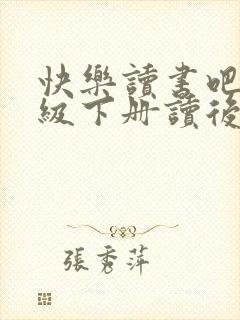 快樂讀書吧
級下册讀後
張秀萍